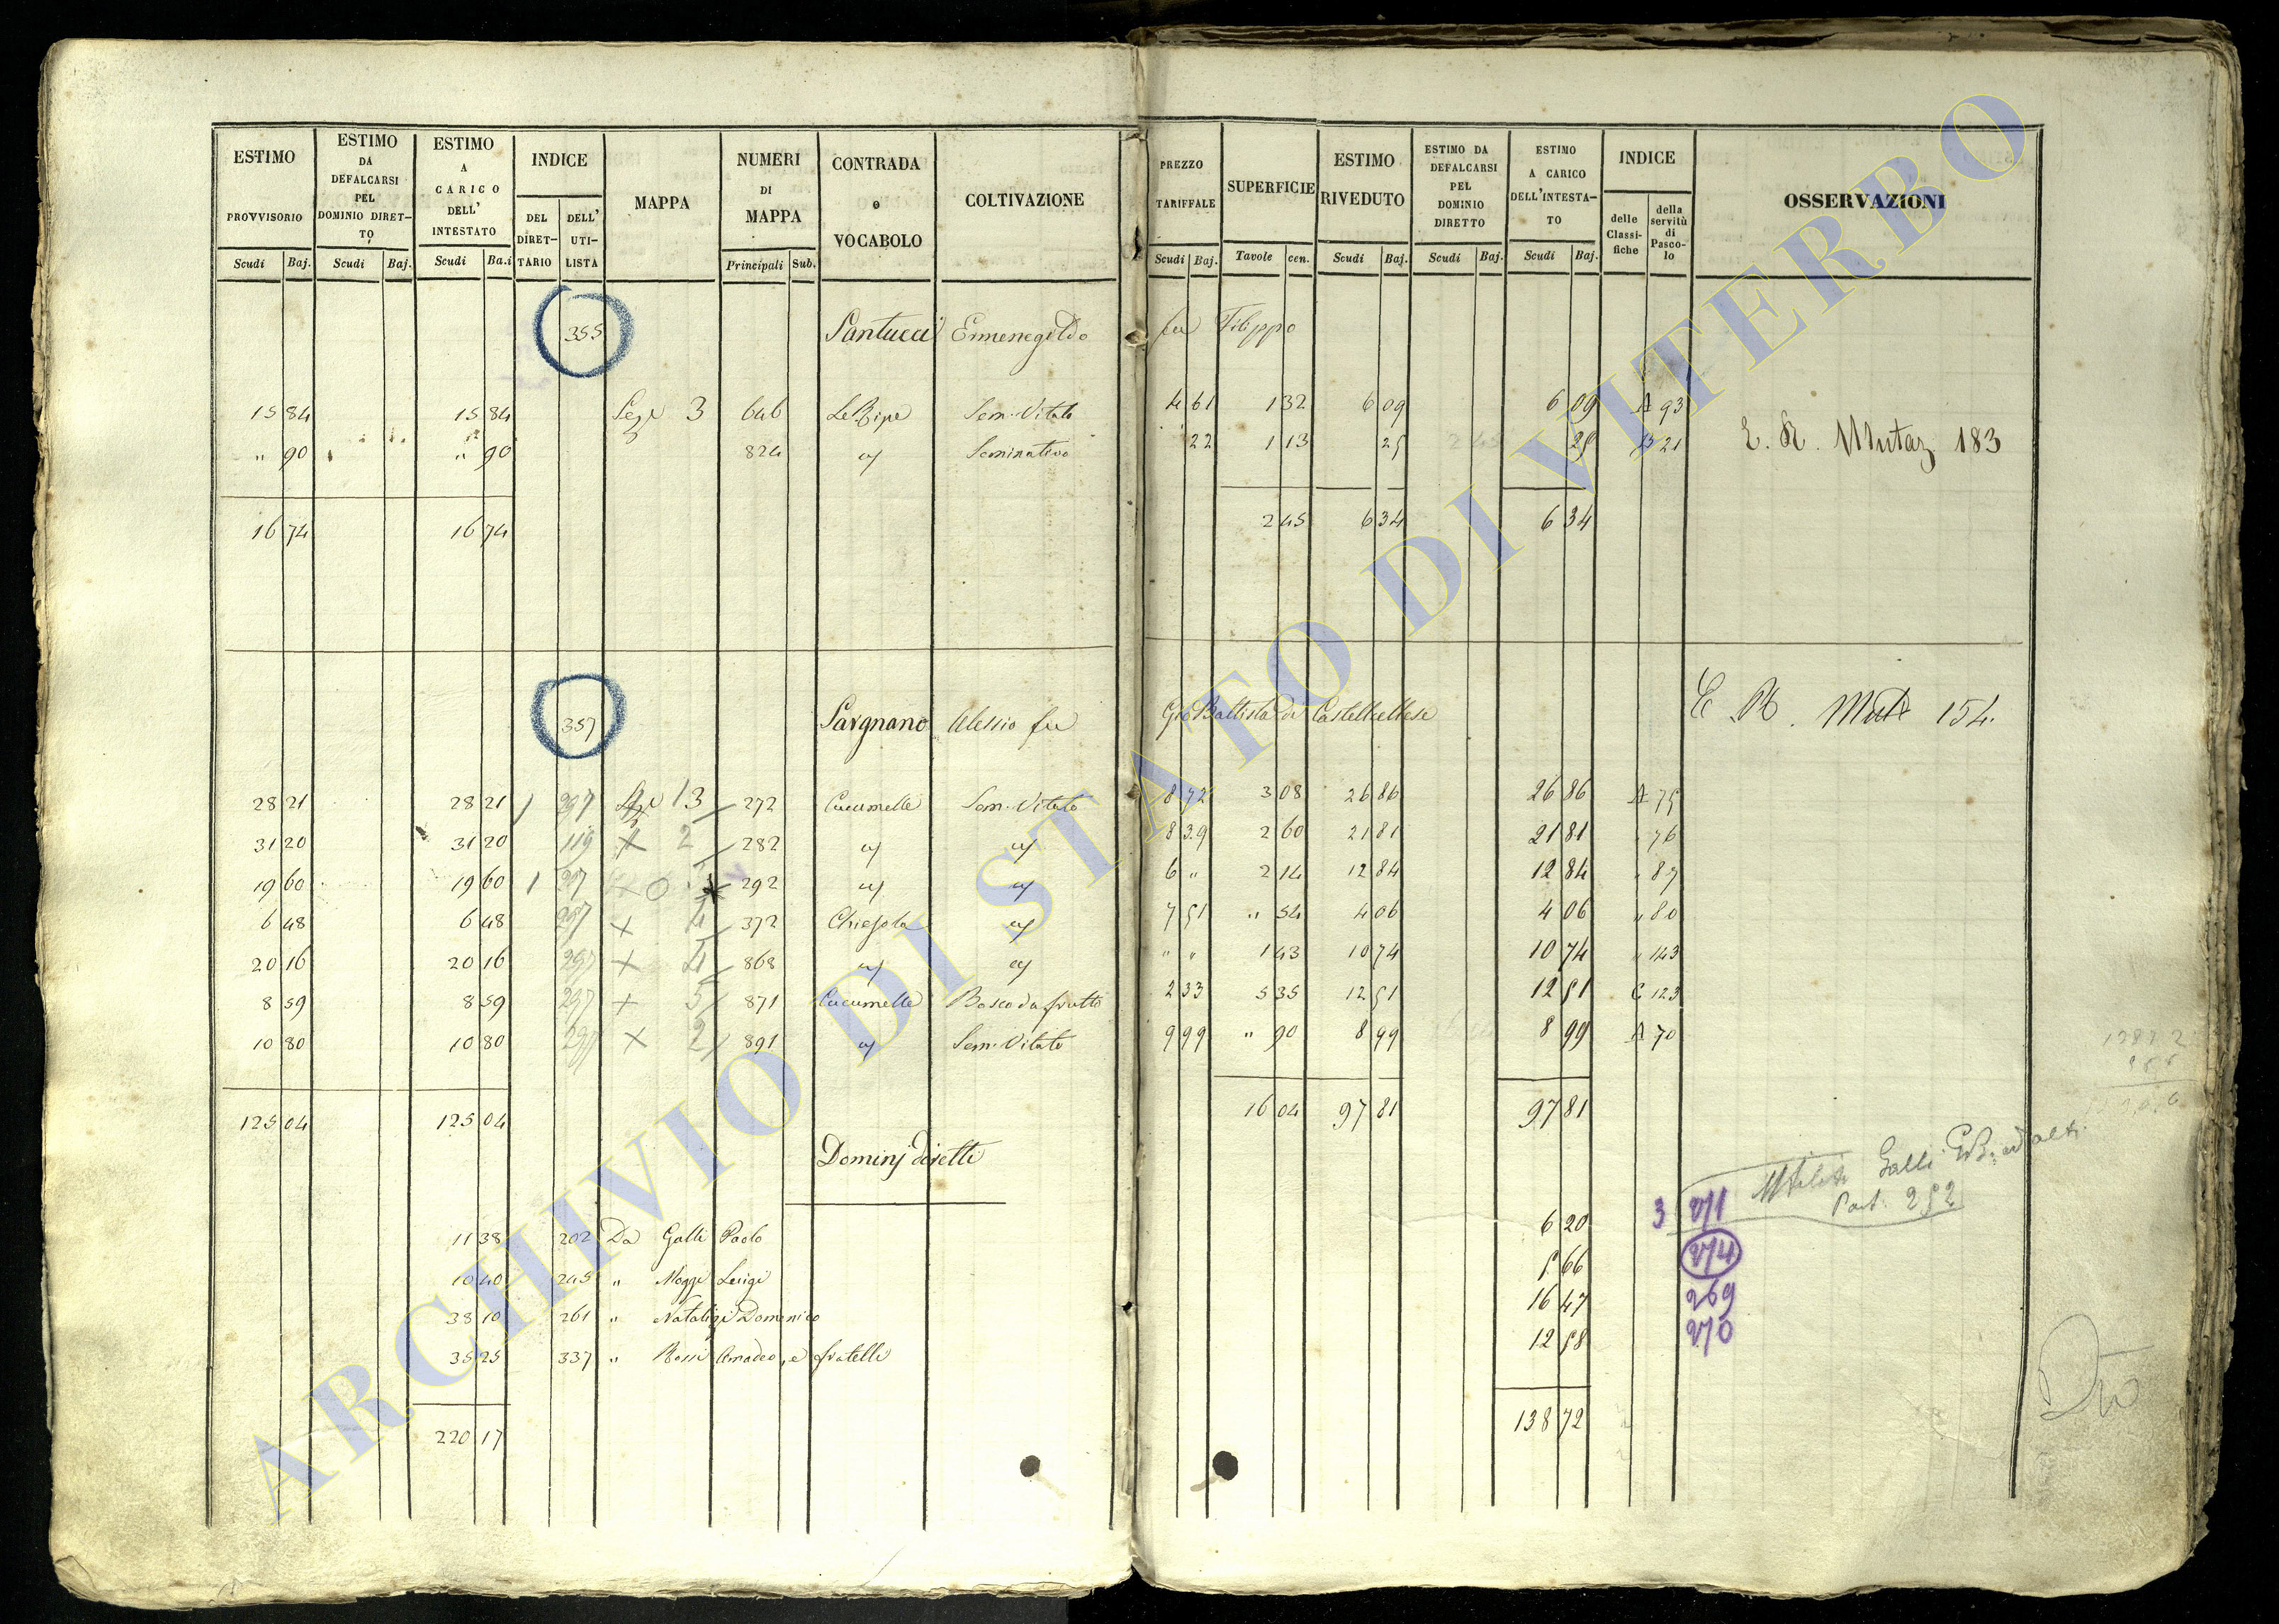 ESTIMO PROVVISORIO Scudi Baj.
ESTIMO DA DEFALCARSI PEL DOMINIO DIRET-TO Scudi Baj.
ESTIMO A CARICO DELL' INTESTATO Scudi Ba.i
INDICE DEL DIRET-TARIO DELL' UTI-LISTA
MAPPA
NUMERI DI MAPPA Principali Sub.
CONTRADA o VOCABOLO
COLTIVAZIONE
PREZZO TARIFFALE Scudi Baj.
SUPERFICIE Tavole cen.
ESTIMO RIVEDUTO Scudi Baj.
ESTIMO DA DEFALCARSI PEL DOMINIO DIRETTO Scudi Baj.
ESTIMO A CARICO DELL'INTESTA-TO Scudi Baj.
INDICE delle Classi-fiche della servitù di Pasco-lo
OSSERVAZIONI
355 Santucci Ermenegildo fu Filippo
15 84 15 84 3 646 Le Ripe Sem. Vitato 4 61 1 32 6 09 6 09 A 93
" 90 " 90 824 Seminativo 22 1 13 25 25 B 21
Mutaz 183
16 74 16 74 2 45 6 34 6 34
357 Sargnano Alessio fu Gio Battista di Castelcellese
Mut 154.
28 21 28 21 1 297 13 272 Cucumelle Sem. Vitato 8 72 3 08 26 86 26 86 A 75
31 20 31 20 119 x 2 282 8 39 2 60 21 81 21 81 " 76
19 60 19 60 1 297 x 292 6 " 2 14 12 84 12 84 " 87
6 48 6 48 297 x 4 372 Chiesola 7 51 " 54 4 06 4 06 " 80
20 16 20 16 297 x 4 868 " " 1 43 10 74 10 74 " 143
8 59 8 59 297 x 5 871 Cucumelle Bosco da frutto 2 33 5 35 12 51 12 51 C 123
10 80 10 80 297 x 2 891 Sem. Vitato 9 99 " 90 8 99 8 99 A 70
125 04 125 04 16 04 97 81 97 81
Dominj diretti
11 38 202 Da Galli Paolo 6 20 3 271
Galli
Part. 252
10 40 245 " Moggi Luigi 5 66 274
38 10 261 " Natalizi Domenico 16 47 269
35 25 337 " Rossi Amadeo, e fratelli 12 58 270
220 17 138 72
ARCHIVIO DI STATO DI VITERBO